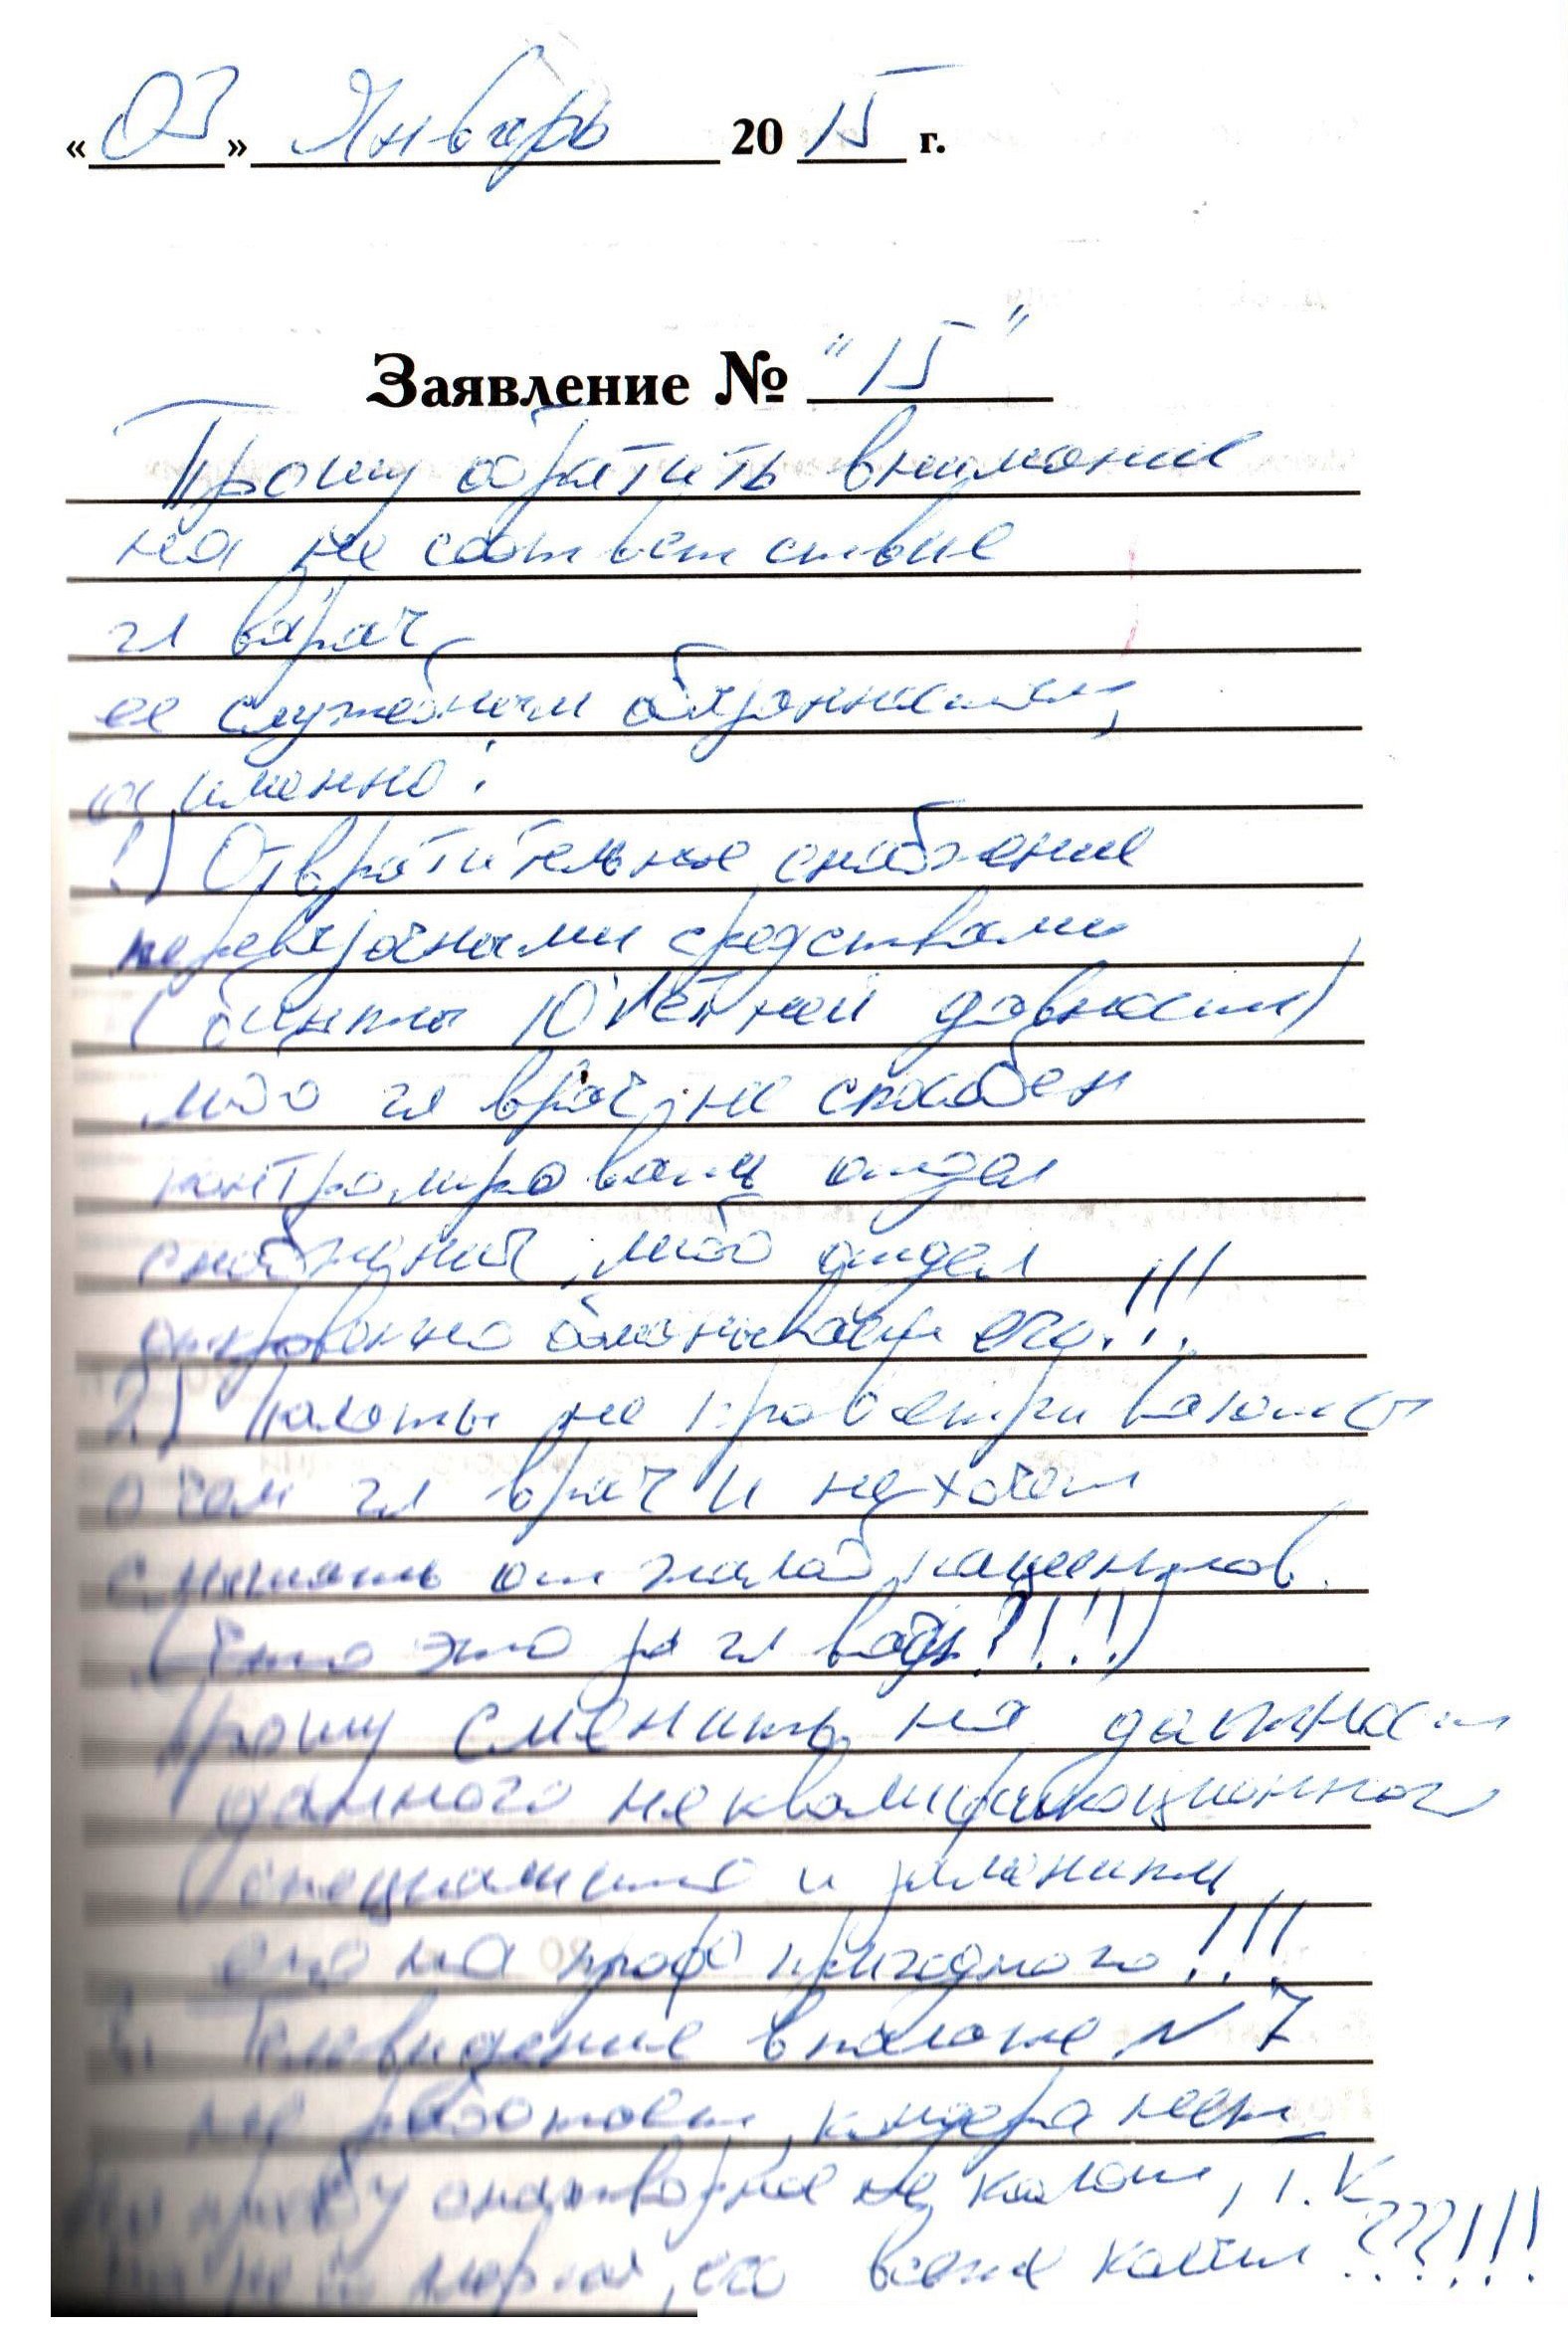 «03» Январь 2015 г.
Заявление № "15"
Прошу обратить внимание
на не соответствие
гл врач
ее служебным обязанностям,
а именно:
1) Отвратительное снабжение
перевязочными средствами
(бинты 10 летней давности)
либо гл врач не способен
контролировать отдел
снабжения, либо отдел
откровенно обманывает его!!!
2) Палаты не проветриваются
о чем гл врач и не хочет
слышать от жалоб пациентов.
(Что это за гл врач?!!!)
Прошу сменить на должност
данного неквалификационного
специалиста и заменить
его на проф пригодного!!!
3. Телевидение в палате №7
не работает, кулера нет
На пробу снотворное не колат, т.к.
всеже ???!!!